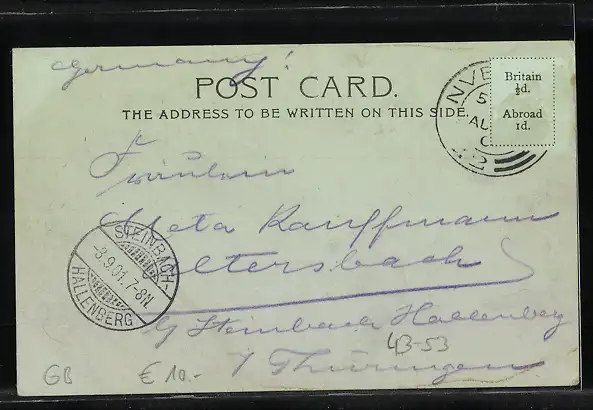 Germany!
POST CARD.
THE ADDRESS TO BE WRITTEN ON THIS SIDE.
Britain
½d.
Abroad
1d.
NVE
5
AU
0
Fräulein
Meta Kauffmann
Altersbach
STEINBACH-
-3.9.01.7-8N.
HALLENBERG
b/ Steinbach Hallenberg
i/ Thüringen
43-53
GB
€ 10.-